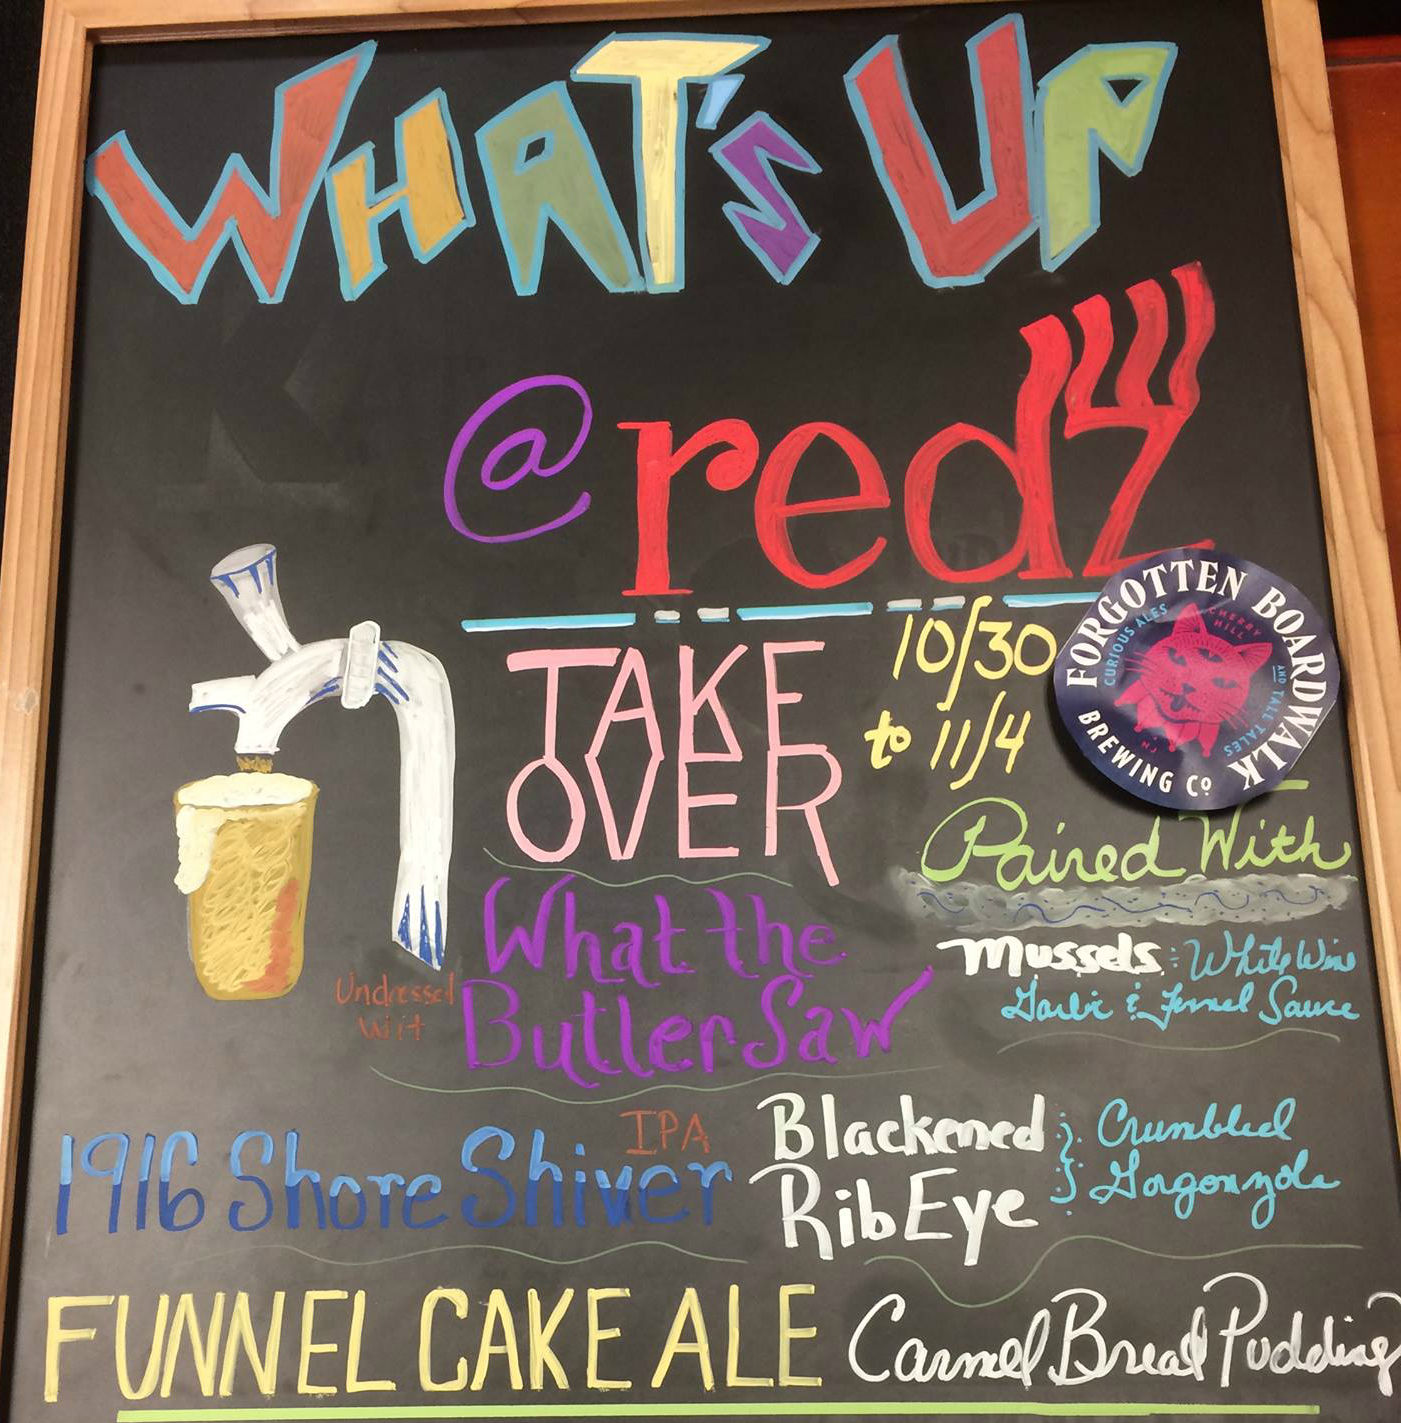 WHAT'S UP
@redz
TAKE
OVER
10/30
to 11/4
FORGOTTEN BOARDWALK
BREWING Co
CURIOUS ALES
AND TAKE TALES
CHERRY
HILL
NJ
Paired With
What the
Butler Saw
Undressed
Wit
Mussels: White Wine
Garlic & Fennel Sauce
1916 Shore Shiver
IPA
Blackened
Rib Eye
Crumbled
Gorgonzola
FUNNEL CAKE ALE
Carmel Bread Pudding